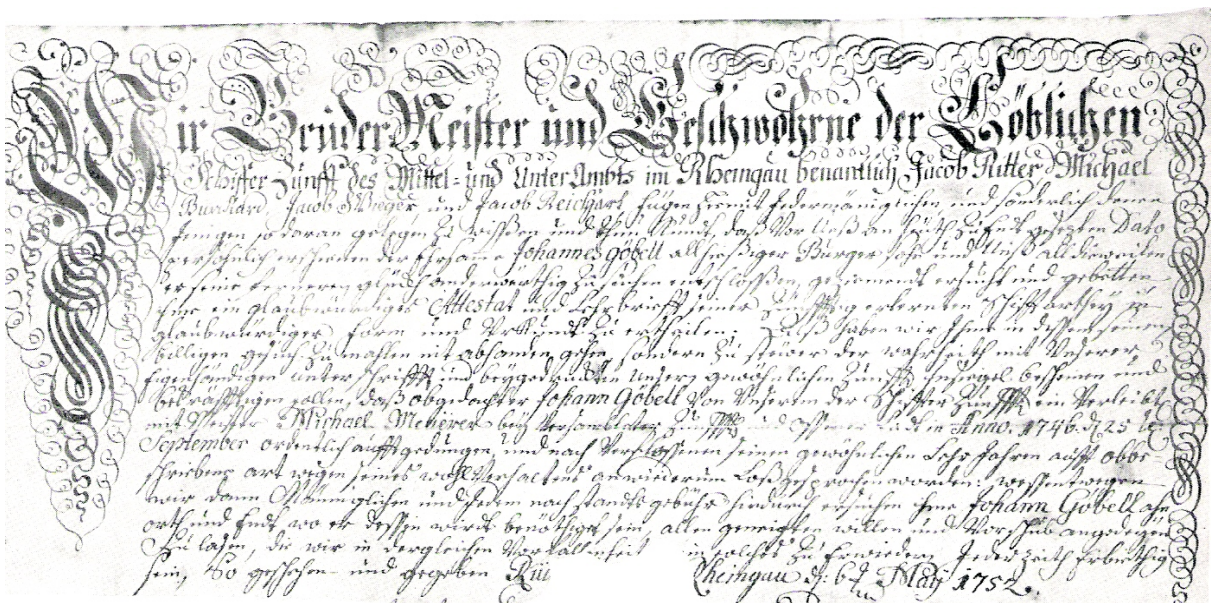 Wir Bruder Meister und Geschwohrne der Löblichen
Schiffer Zunfft des Mittel- und Unter Ambts im Rheingau benantlich Jacob Ritter Michael
Burckard, Jacob Bieger und Jacob Reichart, fügen hiermit jedermäniglichen und sonderlich denen
jenigen so daran gelegen zu wissen und thun Kundt, daß Vor uns an Endts gesetzten Dato
persöhnlich erschienen der Ehrsame Johannes Göbell allhießiger Burgers sohn und alldieweilen
er seine ferneren glück anderwärthig zu suchen entschlossen, geziemendt ersucht und gebetten
ihme ein glaubwürdiges Attestat und Lehrbrieff seiner Zünfftig erlernten Schiffarthey in
glaubwürdiger form und Urkundt zu ertheilen; haben wir Ihme in dessen seinen
billigen gesuch nit absondern zu steuer der wahrheith mit Unserer
Eigenhändigen unterschrifft und beygedruckten Unsers gewöhnlichen Zunfft insiegel bescheinen und
bekräfftigen sollen, daß obgedachter Johann Göbell von Unserer der Schiffer Zunfft ein Verleibte
mit Meister Michael Meherer bey Versambleter Zunfft und in Anno 1746 d. 25
September ordentlich auffgedungen, und nach Verflossenen seinen gewöhnlichen Lehr Jahren auff obbe
schriebene art wegen seines wohl Verhaltens wiederum Loßgesprochen worden; wessentwegen
wir dann Männiglichen und jedem nach standts gebühr hiedurch ersuchen ihme Johann Göbell
orth und Endt wo er dessen wirdt benöthiget sein, allen geneigten willen und Vorschub angedeyen
zu laßen, die wir in dergleichen Vorfallenheit solches zu Erwiedern Jederzeith Erbiethig
sein, So geschehen und gegeben Rü Rheingau d. 6 May 1752.